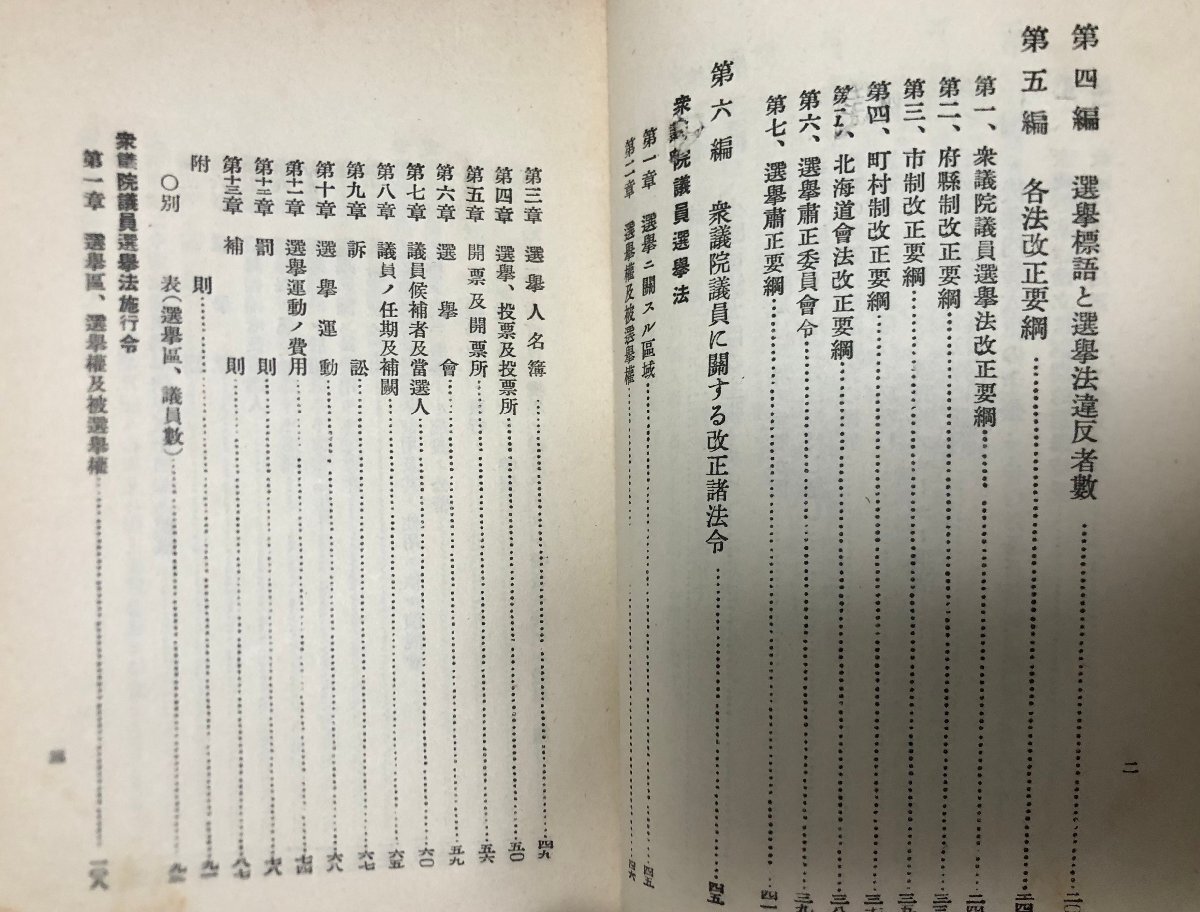 第四編 選擧標語と選擧法違反者數
第五編 各法改正要綱
第一、衆議院議員選擧法改正要綱
第二、府縣制改正要綱
第三、市制改正要綱
第四、町村制改正要綱
第五、北海道會法改正要綱
第六、選擧肅正委員會令
第七、選擧肅正要綱
第六編 衆議院議員に關する改正諸法令 四五
衆議院議員選擧法
第一章 選擧ニ關スル區域 四五
第二章 選擧權及被選擧權 四六
二
第三章 選擧人名簿 四九
第四章 選擧、投票及投票所 五〇
第五章 開票及開票所 五六
第六章 選擧會 五九
第七章 議員候補者及當選人 六〇
第八章 議員ノ任期及補闕 六五
第九章 訴訟 六七
第十章 選擧運動 六八
第十一章 選擧運動ノ費用
第十二章 罰則
第十三章 補則 八七
附則
〇別表(選擧區、議員數)
衆議院議員選擧法施行令
第一章 選擧區、選擧權及被選擧權